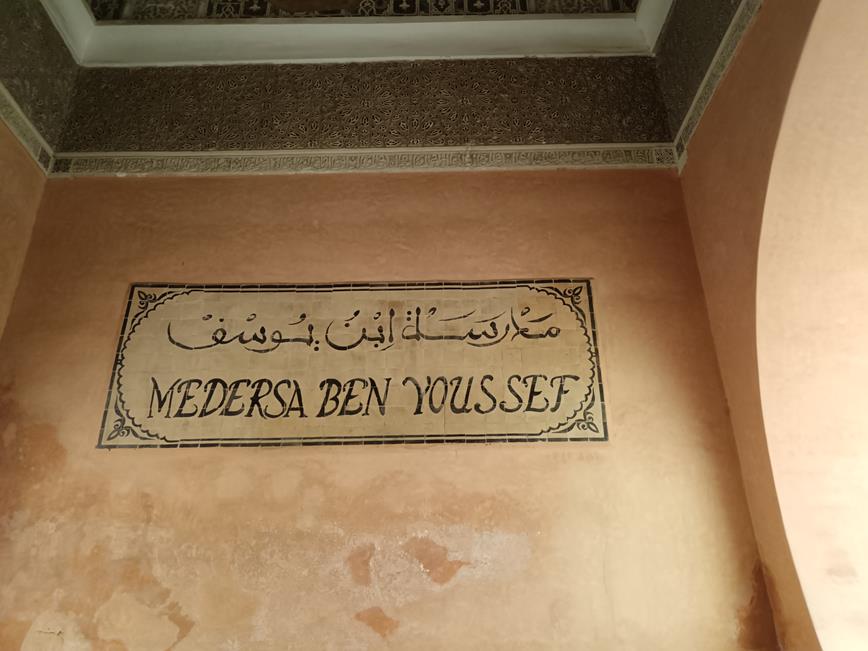 مَدْرَسَةُ اِبْنُ يُوسُفْ
MEDERSA BEN YOUSSEF